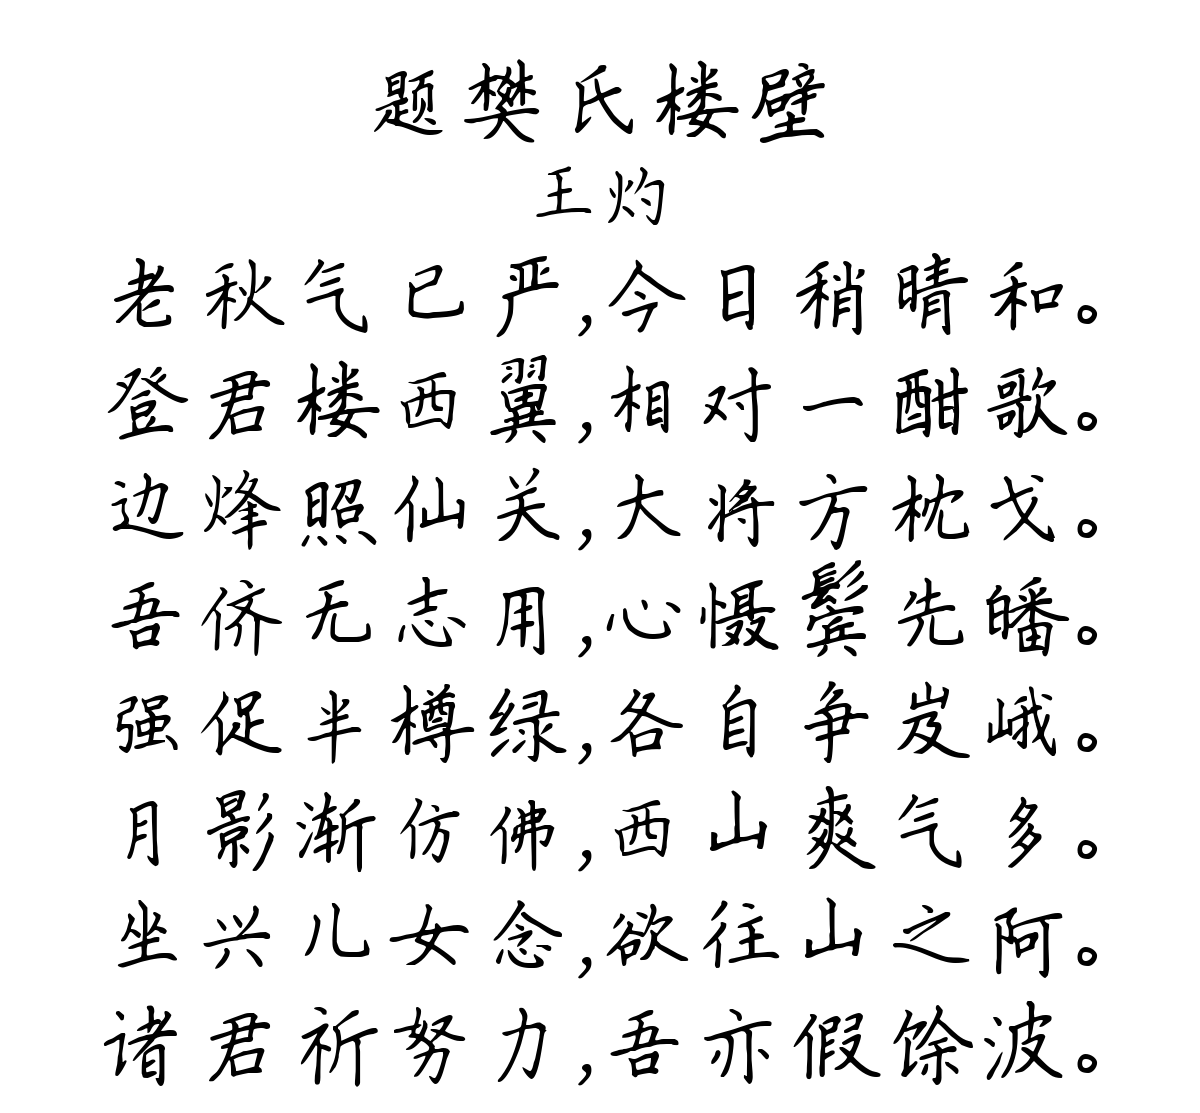 题樊氏楼壁
王灼
老秋气已严,今日稍晴和。
登君楼西翼,相对一酣歌。
边烽照仙关,大将方枕戈。
吾侪无志用,心慑鬓先皤。
强促半樽绿,各自争岌峨。
月影渐仿佛,西山爽气多。
坐兴儿女念,欲往山之阿。
诸君祈努力,吾亦假馀波。